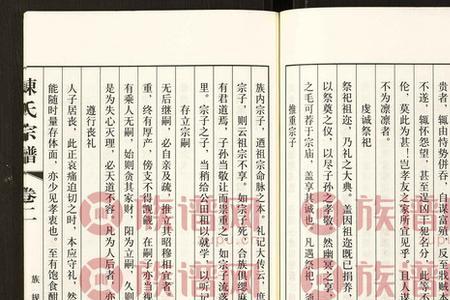 贵者，辄由恃势併吞，自谋富殖，反至戕贼本
不遂，辄怀怨望，甚至逞凶干犯名分，此等不
伦，莫此为甚！岂孝友之家所宜见乎。且人谋
不为凛凛者。
虔诚祭祀
祭祀祖迹，乃礼之大典。盖因祖迹既已捐养，
以祭奠之仪，以尽子孙之孝敬，然幽冥之享，
之毛可荐于宗庙，盖享其诚也。凡遇祭祀，须
推重宗子
族内宗子，迺祖宗命脉之本。礼记大传云，庶
宗子，则云祖宗不享。如宗子死，合族
有君道焉，子孙当敬让而崇重之。如宗子流落
里。宗子之子，当稍给公田租以就学，以听记
存立宗嗣
无后继嗣，必自亲及疏，推立其昭穆相宜者，
重，终有厚产，傍支不得觊觎。在嗣子亦当视
有乘人乏嗣，始则贪其家财，阳为立嗣，久则
是为失心灭理，必天道不容。凡为人后者，则
遵行丧礼
人子居丧，此正哀痛迫切之时，本应守礼，然
能随时量存体面，亦少见孝衷也。至有饱食酣
陳氏宗譜 卷二
族规
族谱